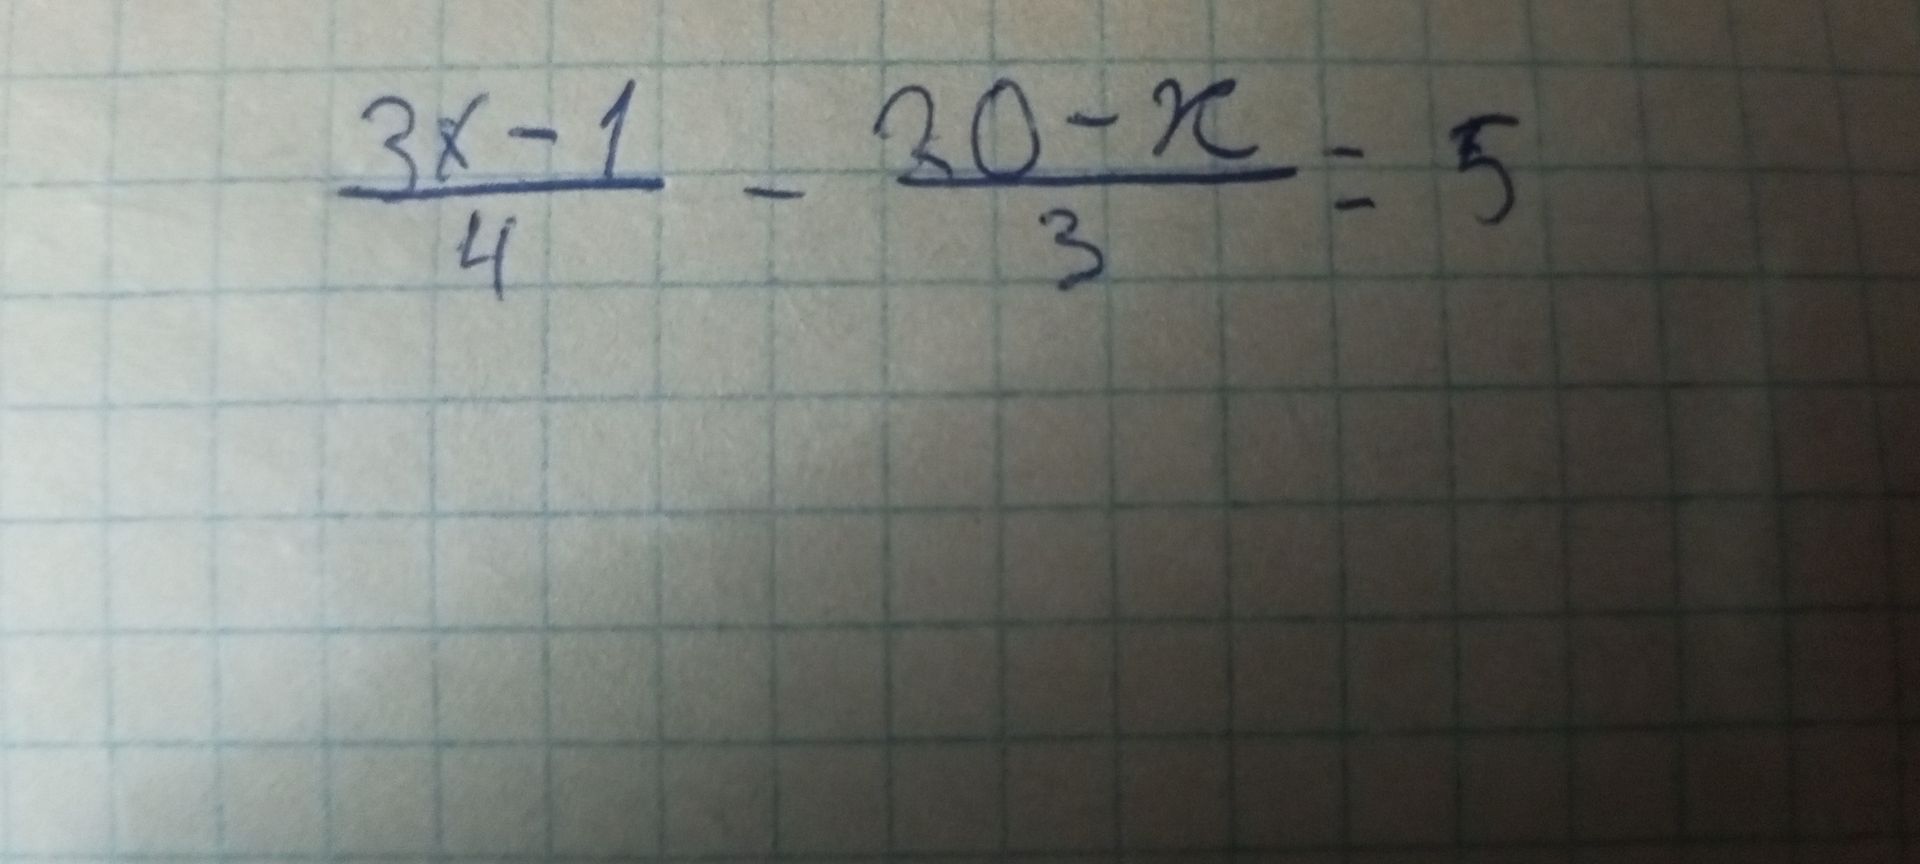 (3x-1)/4 - (20-x)/3 = 5